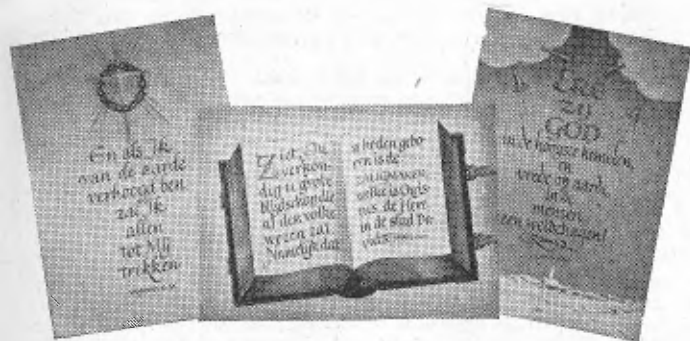 En als Ik
van de aarde
verhoogd ben
zal Ik
allen
tot Mij
trekken
Ziet, Ik
verkon-
dig u grote
blijdschap, die
al den volke
wezen zal
Namelijk dat
u heden gebo-
ren is de
ZALIGMAKER,
welke is Chris-
tus, de Heer,
in de stad Da-
vids.
Ere
zij
GOD
in de hoogste hemelen,
en
vrede op aarde,
in de
mensen
een welbehagen!